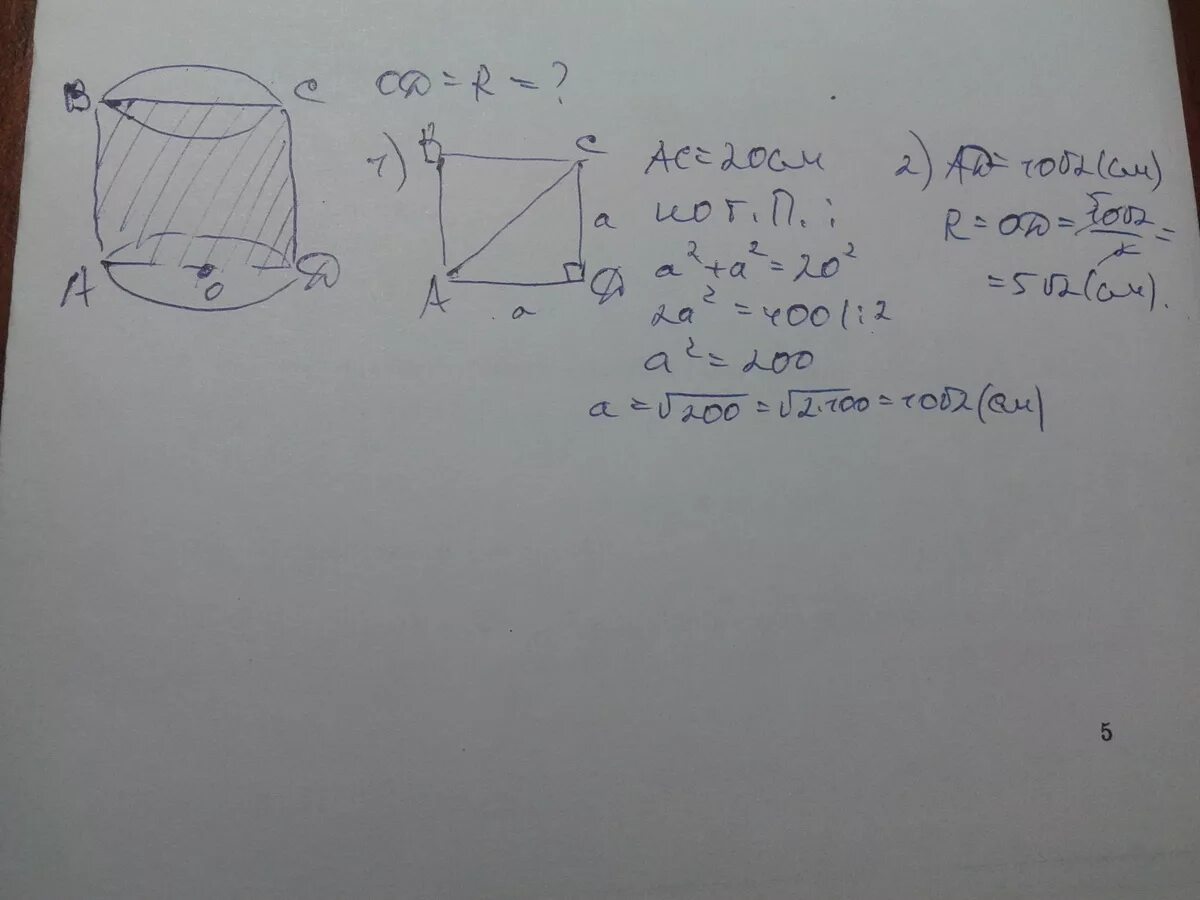 B C
A O D
OD = R = ?
1) B C
a
A a D
AC = 20 см
по т. П. :
a² + a² = 20²
2a² = 400 | : 2
a² = 200
a = √200 = √2·100 = 10√2 (см)
2) AD = 10√2 (см)
R = OD = 10√2/2 =
= 5√2 (см).
5